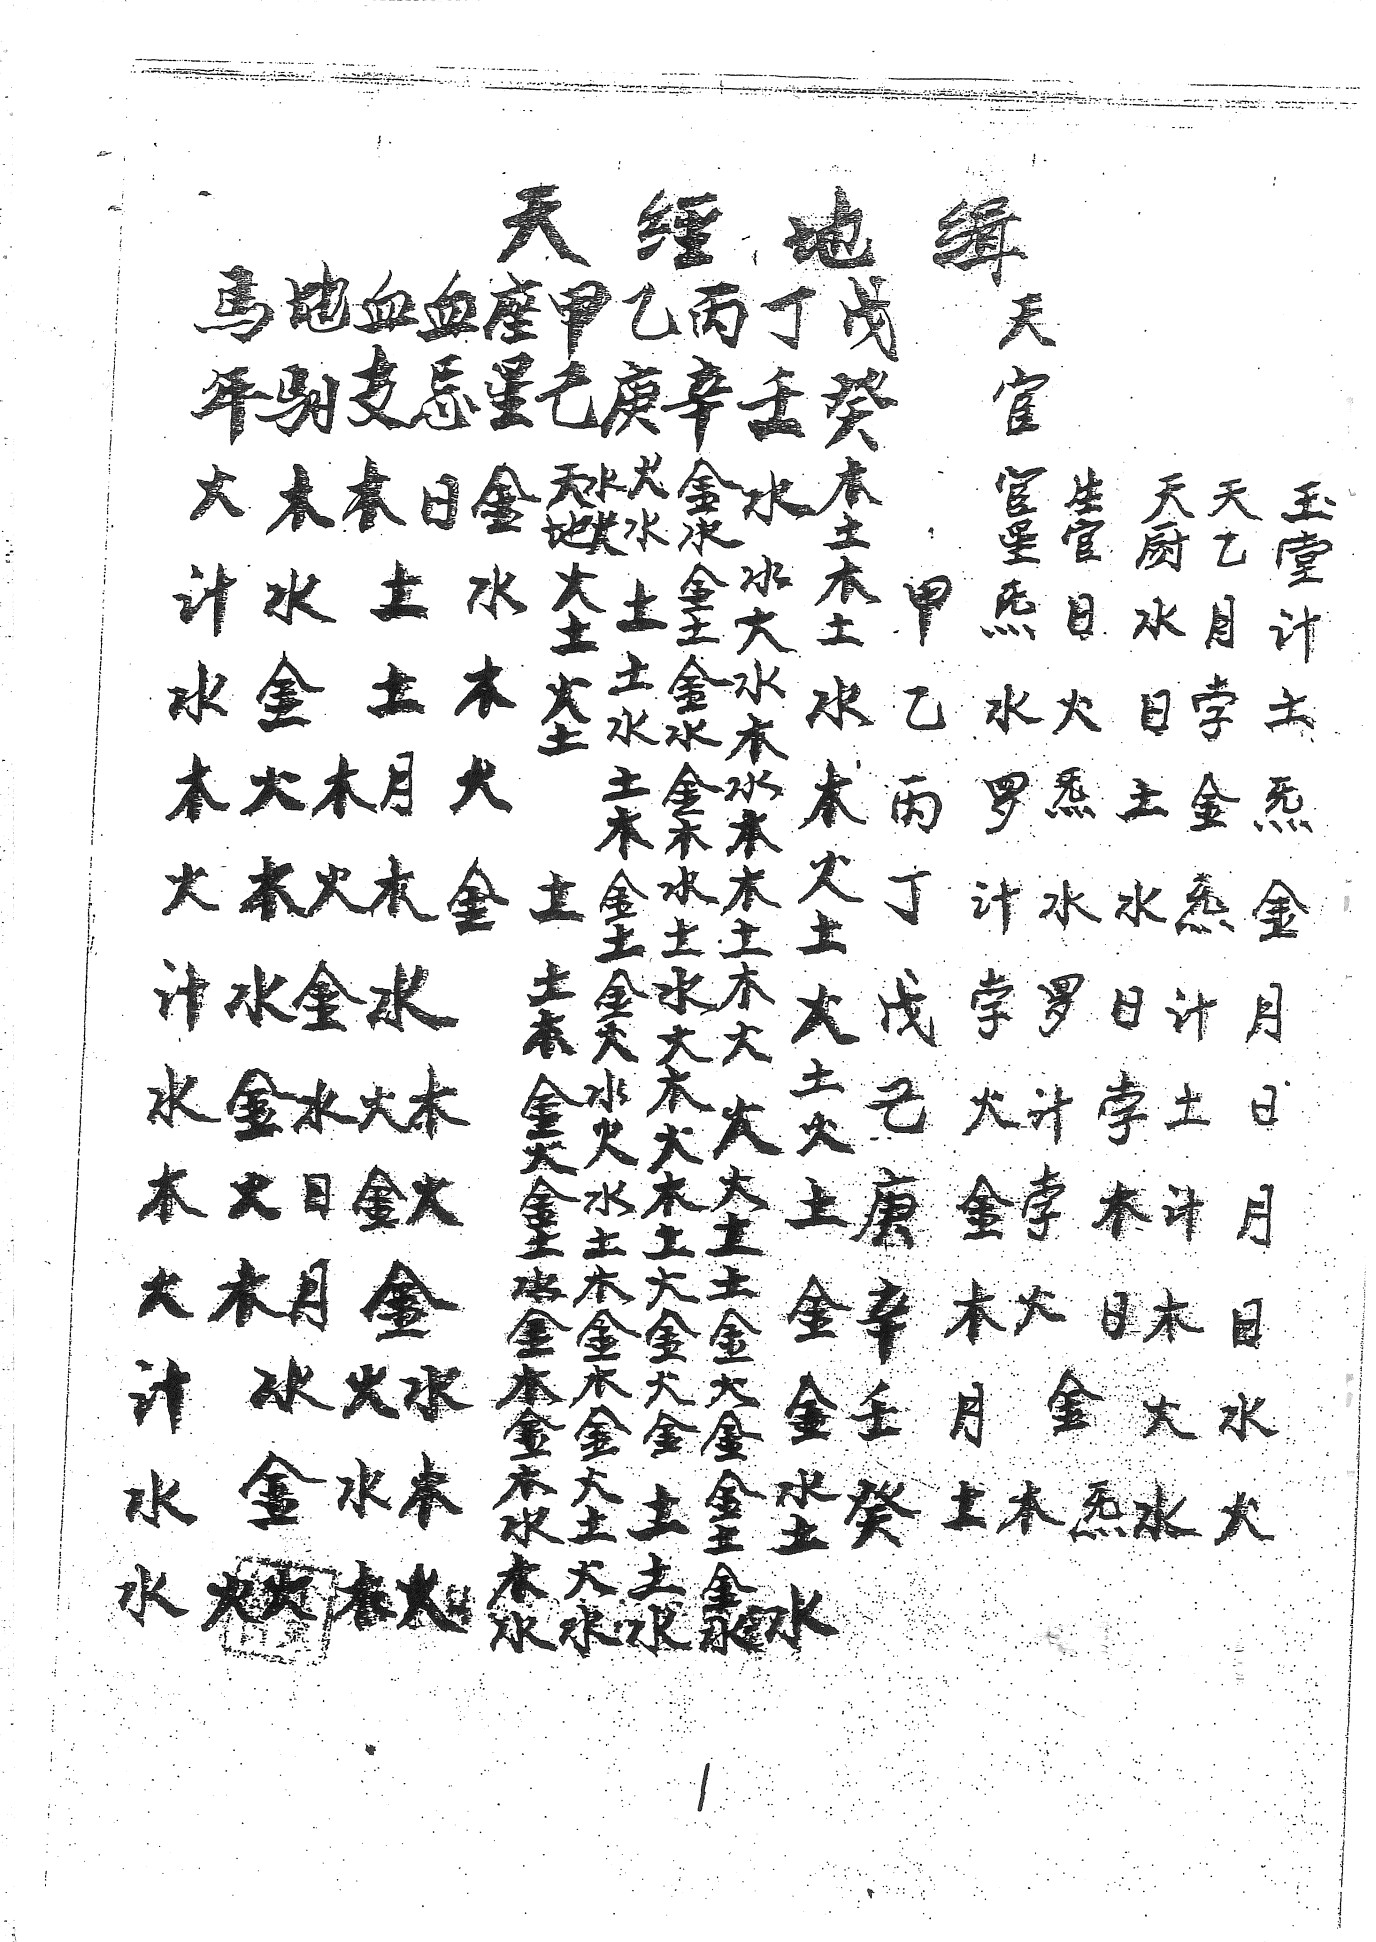 天經地缉
天官
玉堂计土炁金月日月日水火
天乙月孛金炁计土计木火水
天厨水日土水日孛木日炁
生官日火炁水罗计孛火金木
官星炁水罗计孛火金木月土
甲乙丙丁戊己庚辛壬癸
戊癸木土木土水木火土火土火土金金水土水
丁壬水水火水木水木木土木火火火土土金火金金土金水
丙辛金水金土金水金木水土水火木火木土火金火金土土水
乙庚火水土土水土木金土金火水火水土木金木金火土火水
甲己天地水火火土火土土土木金火金土水金木金木水木水
座星金水木火金水木火金水木火
血忌日土土月木火金火水木
血支木木火金水日月
地驸木水金火木水金火木水金火
馬年火计水木火计水木火计水水
1